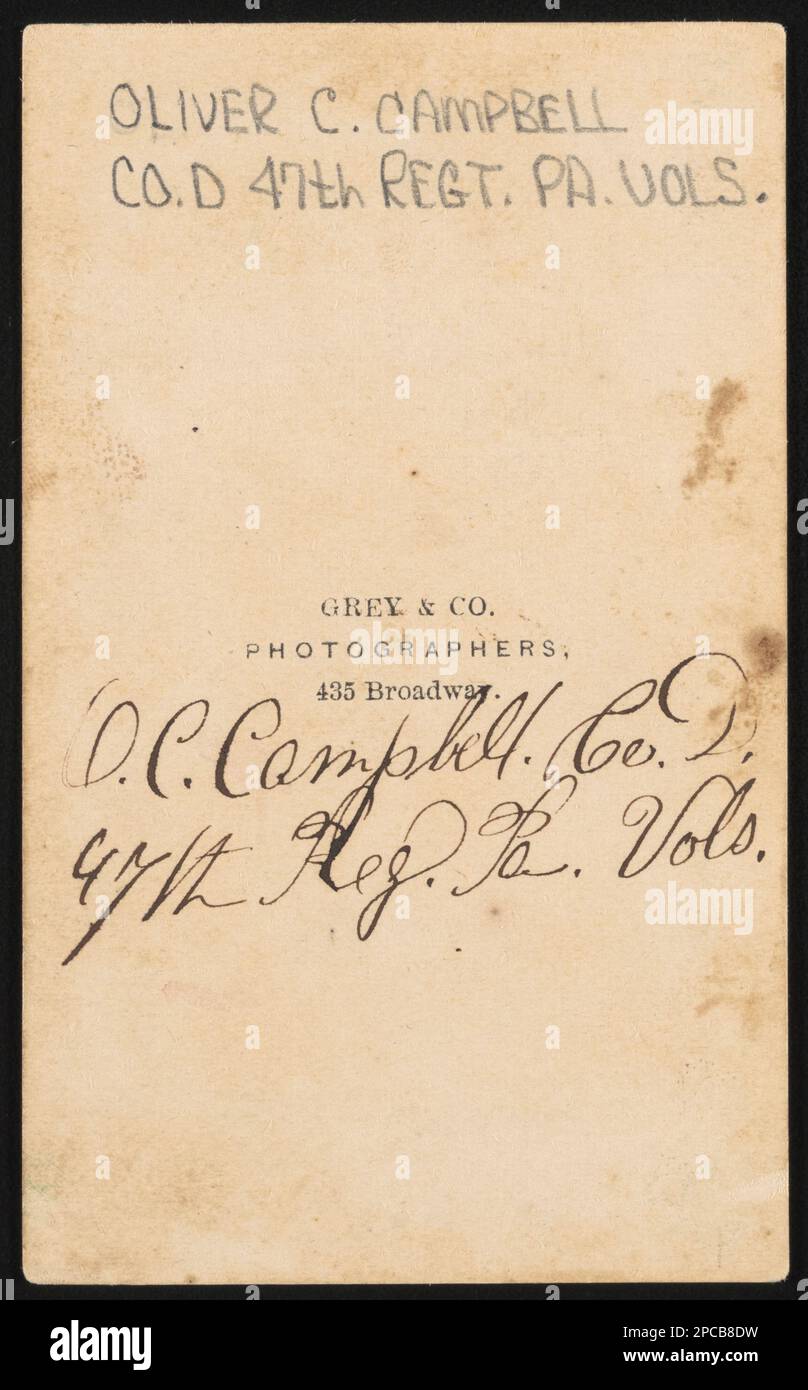 OLIVER C. CAMPBELL
CO. D 47th REGT. PA. VOLS.
GREY & CO.
PHOTOGRAPHERS,
435 Broadway.
O. C. Campbell. Co. D.
47th Reg. Pa. Vols.
alamy
alamy
Image ID: 2PCB8DW
www.alamy.com